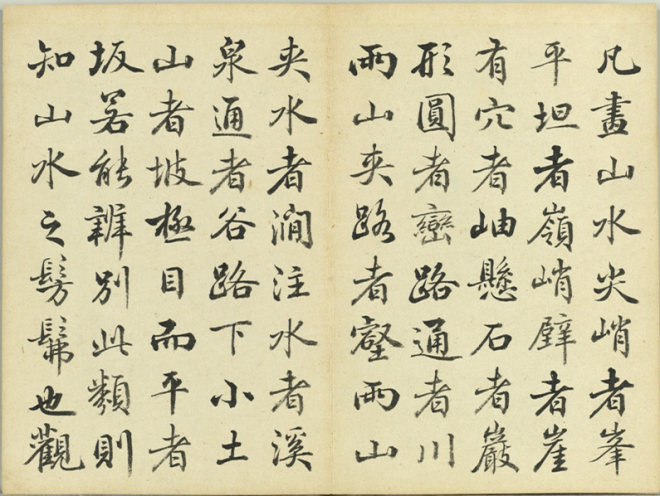 凡畫山水尖峭者峯
平坦者嶺峭壁者崖
有穴者岫懸石者巖
形圓者巒路通者川
兩山夾路者壑兩山
夾水者澗注水者溪
泉通者谷路下小土
山者坡極目而平者
坂若能辨別此類則
知山水之髣髴也觀